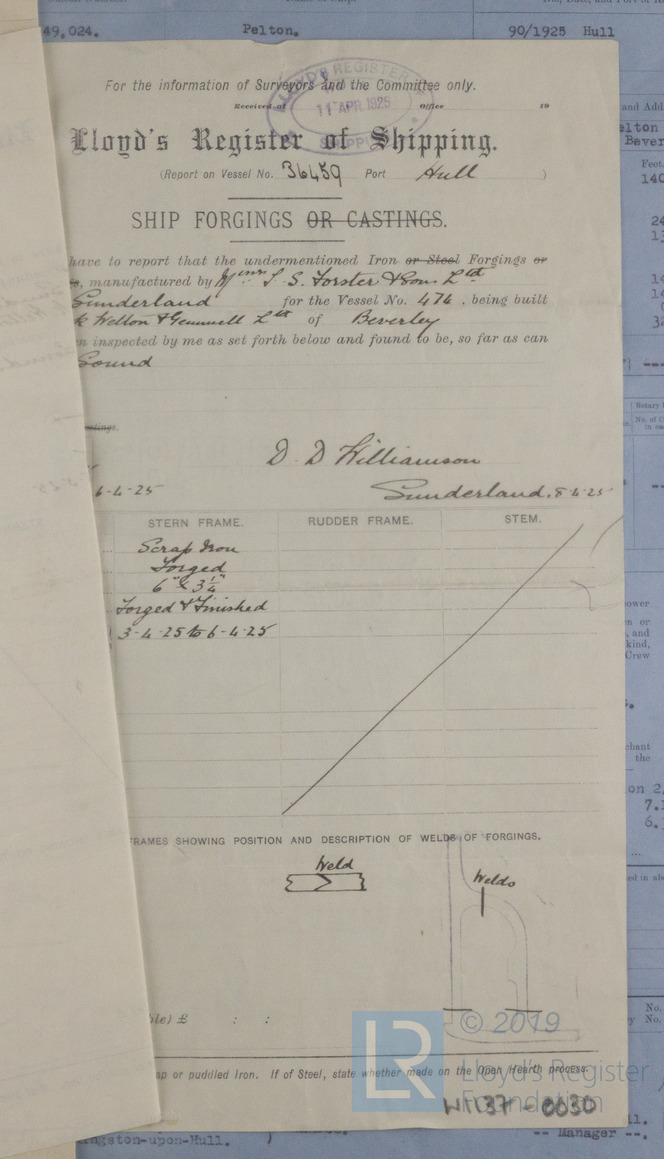 49,024. Pelton. 90/1925 Hull
For the information of Surveyors and the Committee only.
Received at Office 19
LLOYD'S REGISTER OF
11 APR 1925
SHIPPING
Lloyd's Register of Shipping.
(Report on Vessel No. 36459 Port Hull )
SHIP FORGINGS OR CASTINGS.
have to report that the undermentioned Iron or Steel Forgings or
manufactured by Messrs T. S. Forster & Son Ltd
Sunderland for the Vessel No. 474, being built
k Welton & Gemmell Ltd of Beverley
n inspected by me as set forth below and found to be, so far as can
Sound
D. D Williamson
6-4-25 Sunderland. 8-4-25
STERN FRAME. RUDDER FRAME. STEM.
Scrap Iron
Forged
6" x 3¼"
Forged & Finished
3-4-25 to 6-4-25
FRAMES SHOWING POSITION AND DESCRIPTION OF WELDS OF FORGINGS.
Weld
Welds
ble) £ : :
ap or puddled Iron. If of Steel, state whether made on the Open Hearth process.
LR
© 2019
Lloyd's Register
Foundation
W1137-0030
ngston-upon-Hull. )
-- Manager --.
and Add
elton
Bever
Feet.
140
24
13
14
32
Rotary
No. of
in ea
ower
n or
and
kind,
Crew
chant
the
on 2,
7.
6.
ed in ab
No.
No.